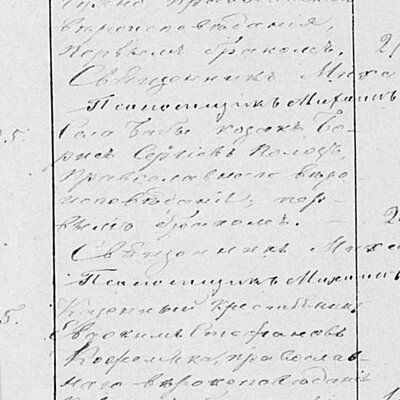 вѣроисповѣданія,
первымъ бракомъ.
Священникъ Миха
Псаломщикъ Михаилъ
5.
Села Бабы козакъ Бо-
рисъ Сергіевъ
православнаго вѣро
исповѣданія, пер-
вымъ бракомъ.
Священникъ Миха
Псаломщикъ Михаилъ
5.
Казенный крестьянинъ
Евдокимъ Стефановъ
Кожемяка, православ-
наго вѣроисповѣданія